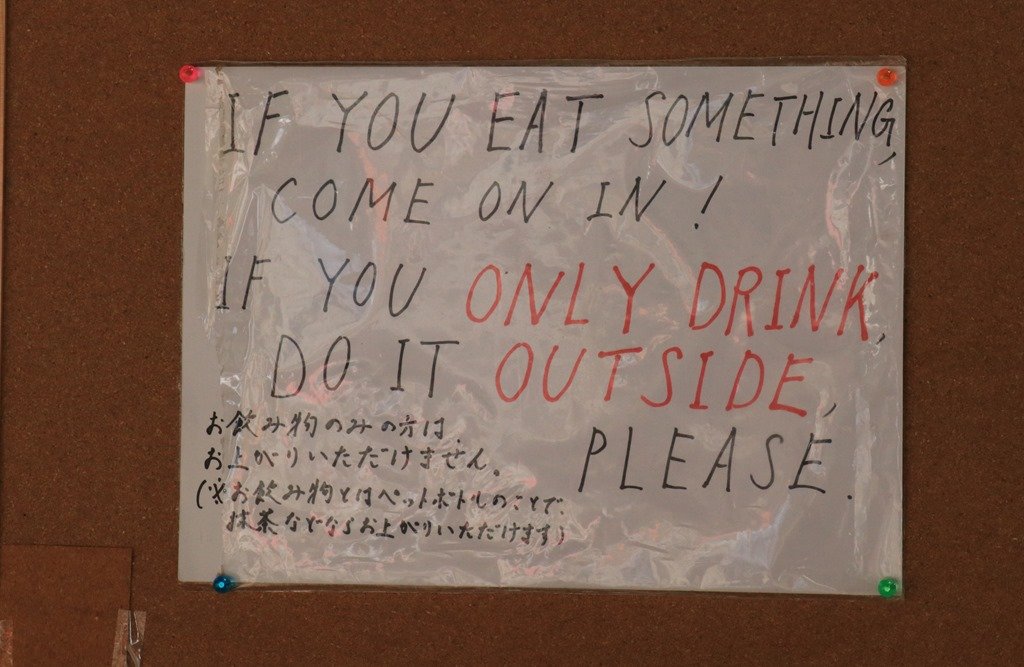 IF YOU EAT SOMETHING,
COME ON IN !
IF YOU ONLY DRINK,
DO IT OUTSIDE,
PLEASE.
お飲み物のみの方は、
お上がりいただけません。
(※お飲み物とはペットボトルのことで、
抹茶などならお上がりいただけます)